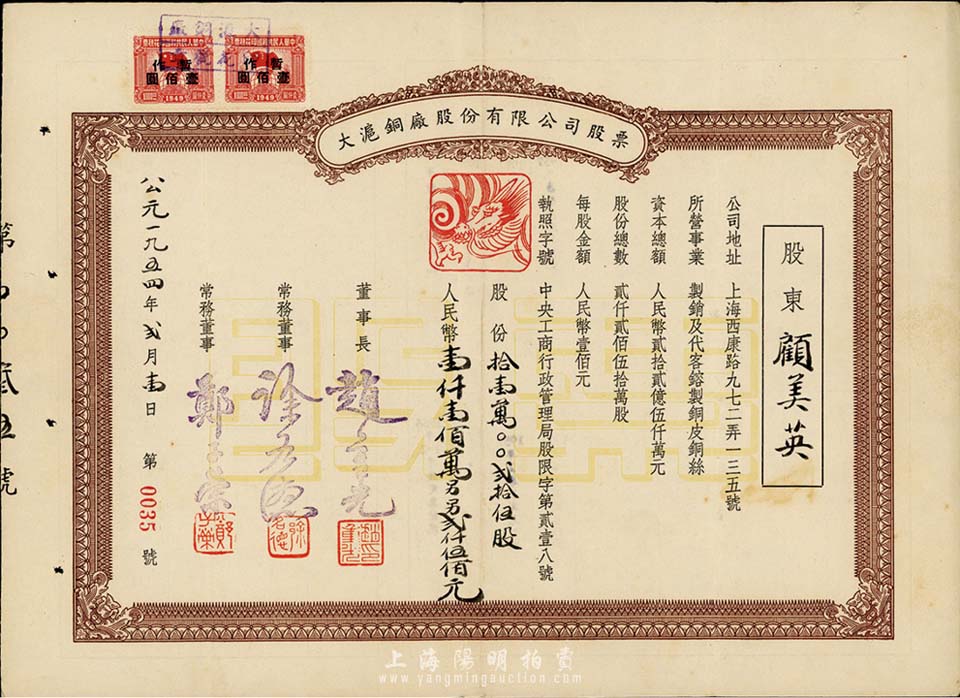 大滬銅廠股份有限公司股票
股東 顧美英
公司地址 上海西康路九七二弄一三五號
所營事業 製銷及代客鎔製銅皮銅絲
資本總額 人民幣貳拾貳億伍仟萬元
股份總數 貳仟貳佰伍拾萬股
每股金額 人民幣壹佰元
執照字號 中央工商行政管理局股限字第貳壹八號
股份 拾壹萬〇〇貳拾伍股
人民幣壹仟壹佰萬另另貳仟伍佰元
董事長
常務董事
常務董事
公元一九五四年貳月壹日 第0035號
暫作
壹佰圓
1949
暫作
壹佰圓
1949
上海陽明拍賣
www.yangmingauction.com